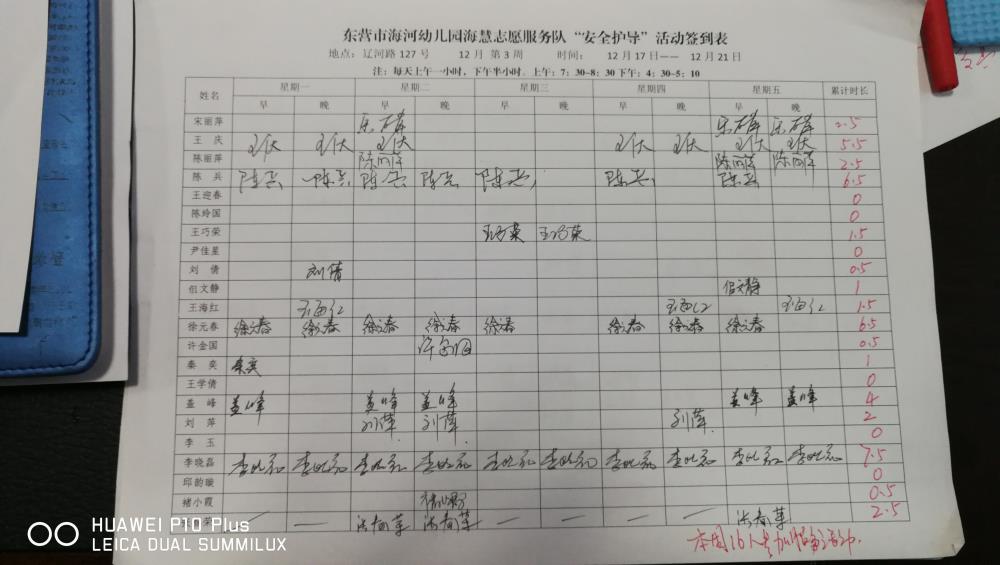 东营市海河幼儿园海慧志愿服务队“安全护导”活动签到表
地点：辽河路 127 号 12 月 第 3 周 时间： 12 月 17 日—— 12 月 21 日
注：每天上午一小时，下午半小时。上午：7：30-8：30 下午：4：30-5：10
姓名 星期一 星期二 星期三 星期四 星期五 累计时长
早 晚 早 晚 早 晚 早 晚 早 晚
宋丽萍 2.5
王 庆 王庆 王庆 王庆 王庆 王庆 王庆 王庆 5.5
陈丽萍 陈丽萍 陈丽萍 陈丽萍 2.5
陈 兵 陈兵 陈兵 陈兵 陈兵 陈兵 陈兵 陈兵 6.5
王迎春 0
陈玲国 0
王巧荣 王巧荣 王巧荣 1.5
尹佳星 0
刘 倩 刘倩 0.5
但文静 但文静 1
王海红 王海红 王海红 王海红 1.5
徐元春 徐元春 徐元春 徐元春 徐元春 徐元春 徐元春 徐元春 徐元春 6.5
许金国 许金国 0.5
秦 奕 秦奕 1
王学倩 0
盖 峰 盖峰 盖峰 盖峰 盖峰 盖峰 4
刘 萍 刘萍 刘萍 刘萍 2
李 玉 0
李晓磊 李晓磊 李晓磊 李晓磊 李晓磊 李晓磊 李晓磊 李晓磊 李晓磊 李晓磊 李晓磊 7.5
邱韵璇 0
褚小霞 0.5
荣 — — — — — — 2.5
本周16人参加
HUAWEI P10 Plus
LEICA DUAL SUMMILUX